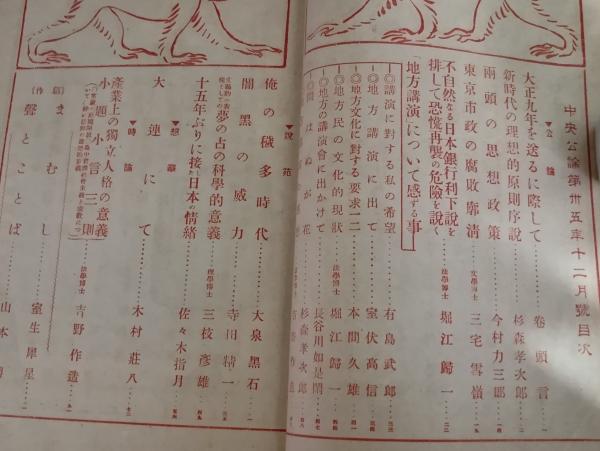 中央公論第卅五年十二月號目次
▼公論
大正九年を送るに際して 卷頭言
新時代の理想的原則序說 杉森孝次郎
兩頭の思想政策 今村力三郎
東京市政の腐敗廓淸 文學博士 三宅雪嶺
不自然なる日本銀行利下說を
排して恐慌再襲の危險を說く 法學博士 堀江歸一
「地方講演」について感ずる事
◎講演に對する私の希望 有島武郎
◎地方講演に出て 室伏高信
◎地方文化に對する要求一二 本間久雄
◎地方民の文化的現狀 法學博士 堀江歸一
◎地方の講演會に出かけて 長谷川如是閑
杉森孝次郎
▼說苑
俺の穢多時代 大泉黑石
闇黑の威力 寺田精一
夢の占の科學的意義 理學博士 三枝彥雄
十五年ぶりに接した日本情緖 佐々木指月
▼想華
大連にて 木村莊八
▼時論
產業上の獨立人格の意義
小題小言三則 法學博士 吉野作造
まむし 室生犀星
聲とことば 山本